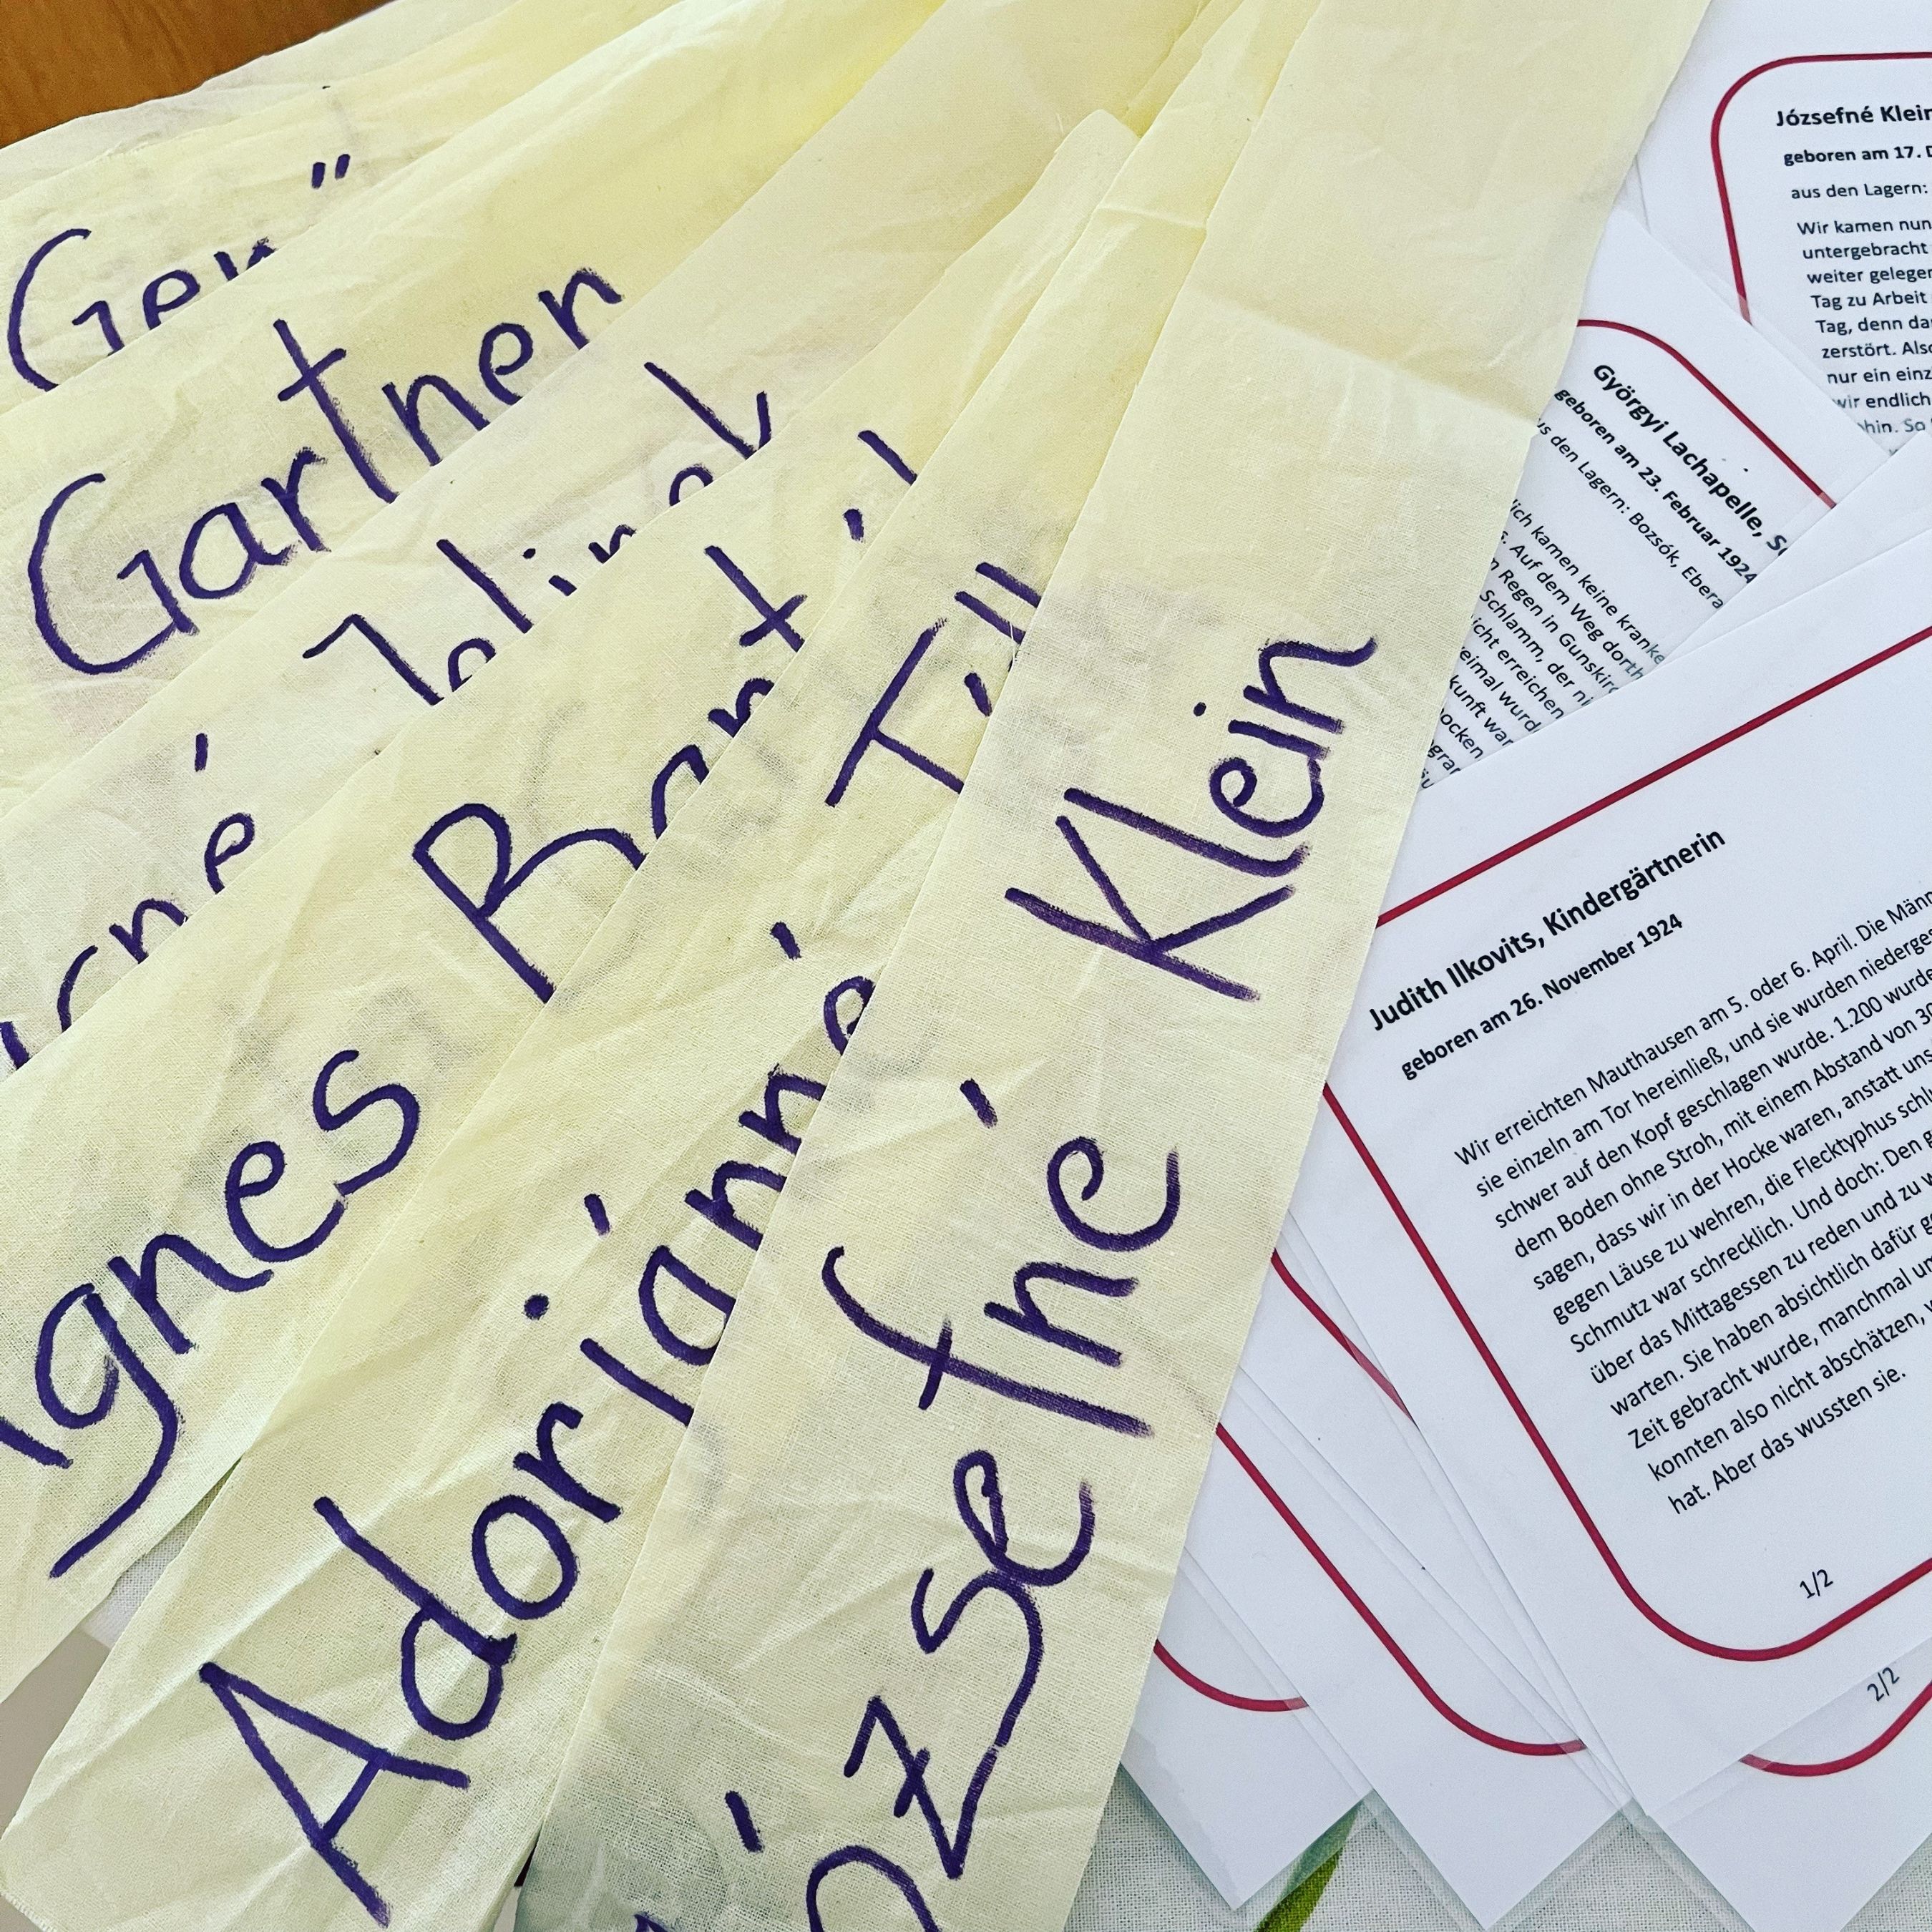 Gartner
Zelinek
Agnes
Adorjanné
Józsefné Klein
Józsefné Klein
geboren am 17.
aus den Lagern:
Wir kamen nun
untergebracht
weiter gelegen
Tag zu Arbeit
Tag, denn
zerstört.
nur ein
wir endlich
So
Györgyi Lachapelle,
geboren am 23. Februar 1924
den Lagern: Bozsók, Ebera
kamen keine
Auf dem Weg dorth
Regen in Gunskirc
Schlamm, der
erreichen
wurd
war
Judith Ilkovits, Kindergärtnerin
geboren am 26. November 1924
Wir erreichten Mauthausen am 5. oder 6. April. Die Männ
sie einzeln am Tor hereinließ, und sie wurden niederges
schwer auf den Kopf geschlagen wurde. 1.200 wurde
dem Boden ohne Stroh, mit einem Abstand von 30
sagen, dass wir in der Hocke waren, anstatt uns
gegen Läuse zu wehren, die Flecktyphus schlu
Schmutz war schrecklich. Und doch: Den g
über das Mittagessen zu reden und zu w
warten. Sie haben absichtlich dafür ge
Zeit gebracht wurde, manchmal um
konnten also nicht abschätzen, w
hat. Aber das wussten sie.
1/2
2/2